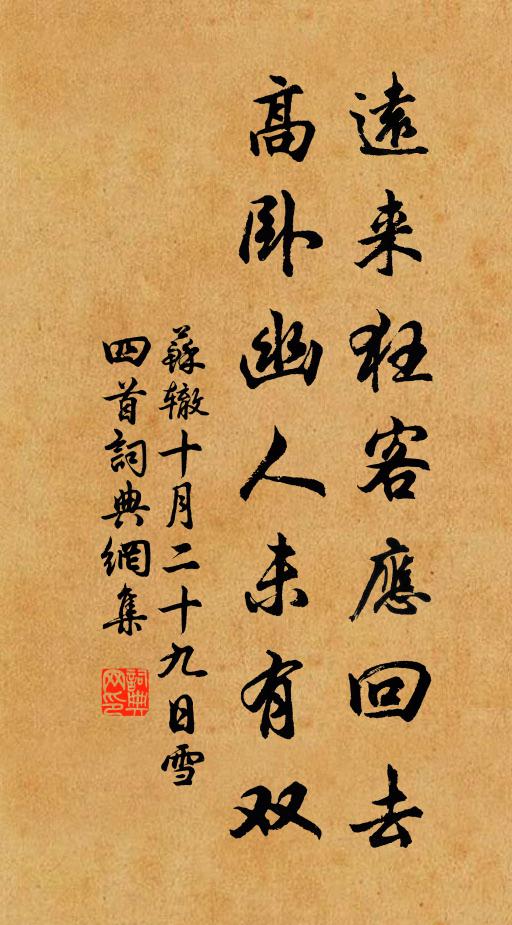 遠来狂客應回去
高卧幽人未有双
蘇辙十月二十九日雪
四首詞典網集
詞典网印